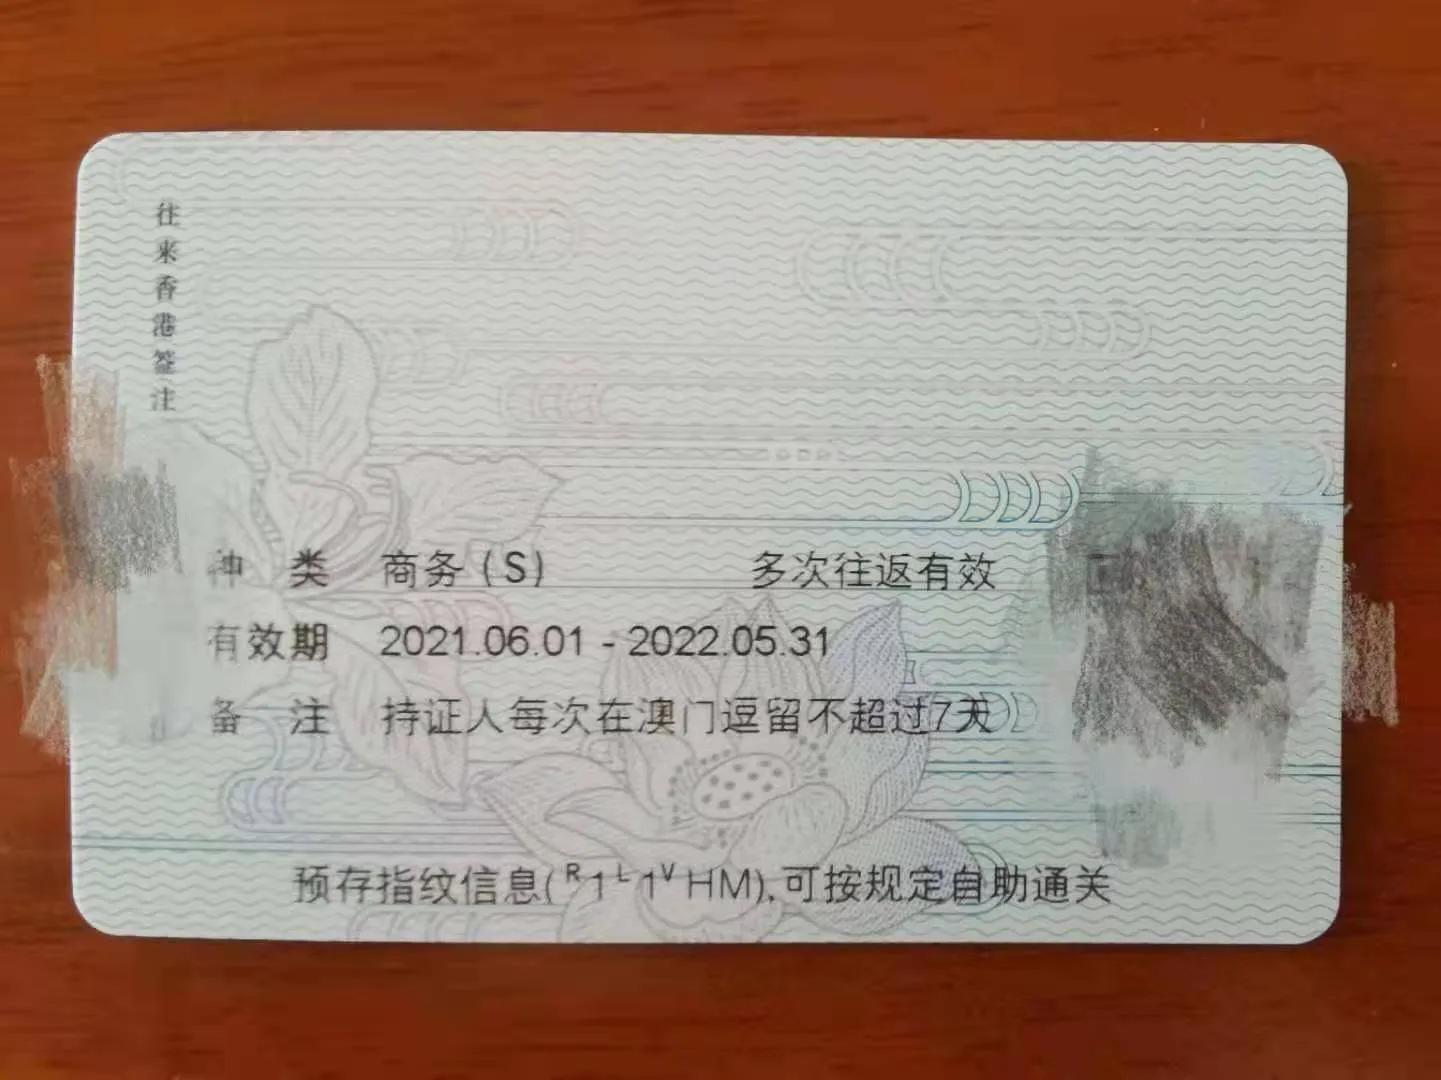 往来香港签注
种 类 商务(S) 多次往返有效
有效期 2021.06.01 - 2022.05.31
备 注 持证人每次在澳门逗留不超过7天
预存指纹信息(R1L1VHM),可按规定自助通关